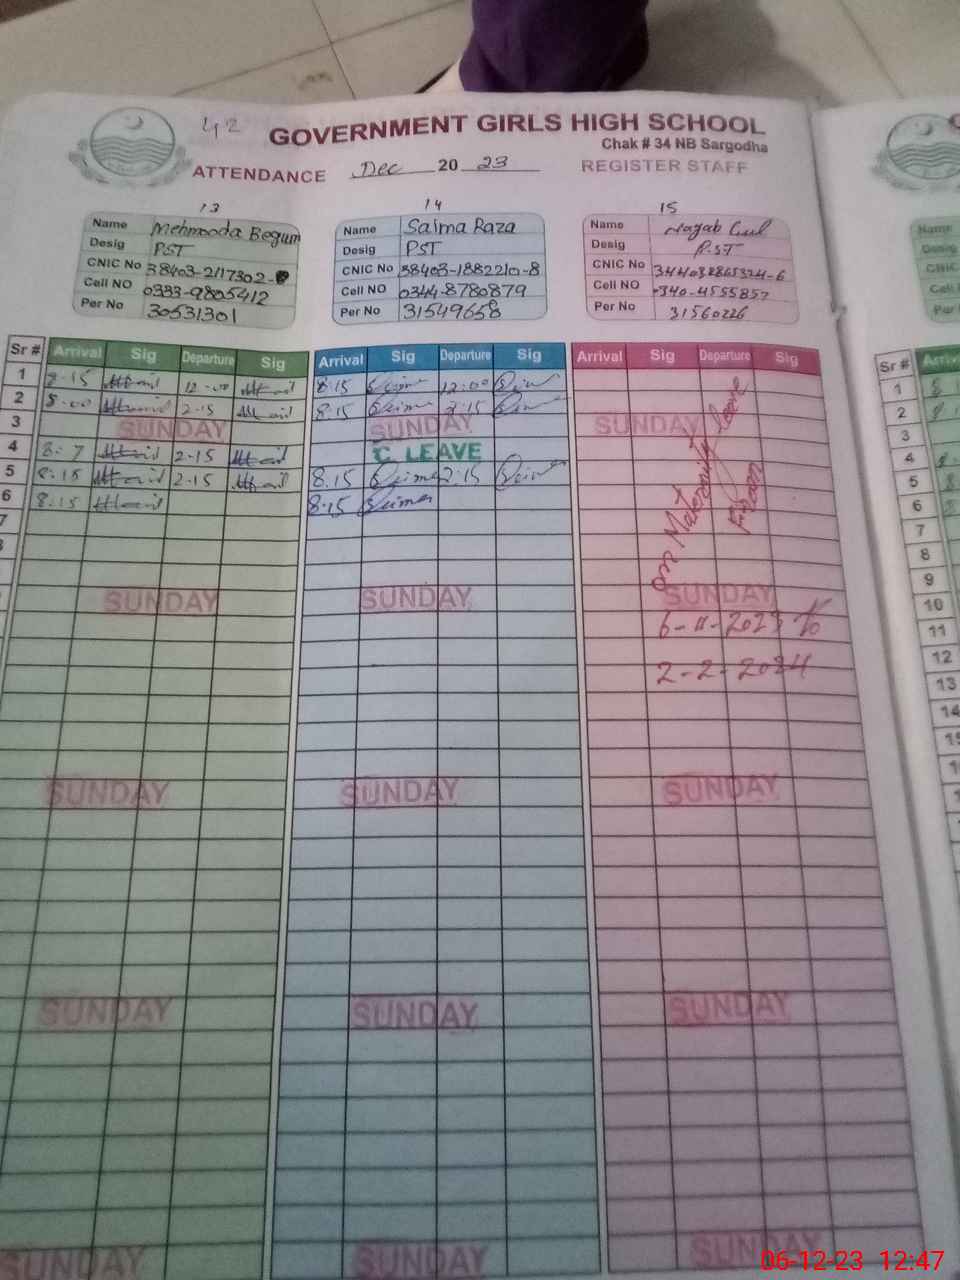 42
GOVERNMENT GIRLS HIGH SCHOOL
Chak # 34 NB Sargodha
ATTENDANCE Dec 2023 REGISTER STAFF
13
Name Mehmooda Begum
Desig PST
CNIC No 38403-2117302-
Cell NO 0333-9805412
Per No 30531301
14
Name Salma Raza
Desig PST
CNIC No 38403-1882210-8
Cell NO 0344-8780879
Per No 31549658
15
Name Nayab Gul
Desig P.ST
CNIC No
Cell NO 0340-4555857
Per No 31560226
Sr # Arrival Sig Departure Sig Arrival Sig Departure Sig Arrival Sig Departure Sig
1 8.15 12-00 8.15 12:00
2 8.00 2.15 8.15 2.15
3 SUNDAY SUNDAY SUNDAY
4 8: 7 2.15 C LEAVE
5 8.15 2.15 8.15 2.15
6 8.15 8.15
7
on Maternity leave
From
SUNDAY SUNDAY SUNDAY
6-11-2023 To
2-2-2024
SUNDAY SUNDAY SUNDAY
SUNDAY SUNDAY SUNDAY
SUNDAY SUNDAY SUNDAY
Name
Desig
CNIC
Cell N
Per No
Sr #
1
2
3
4
5
6
7
8
9
10
11
12
13
14
06-12-23 12:47